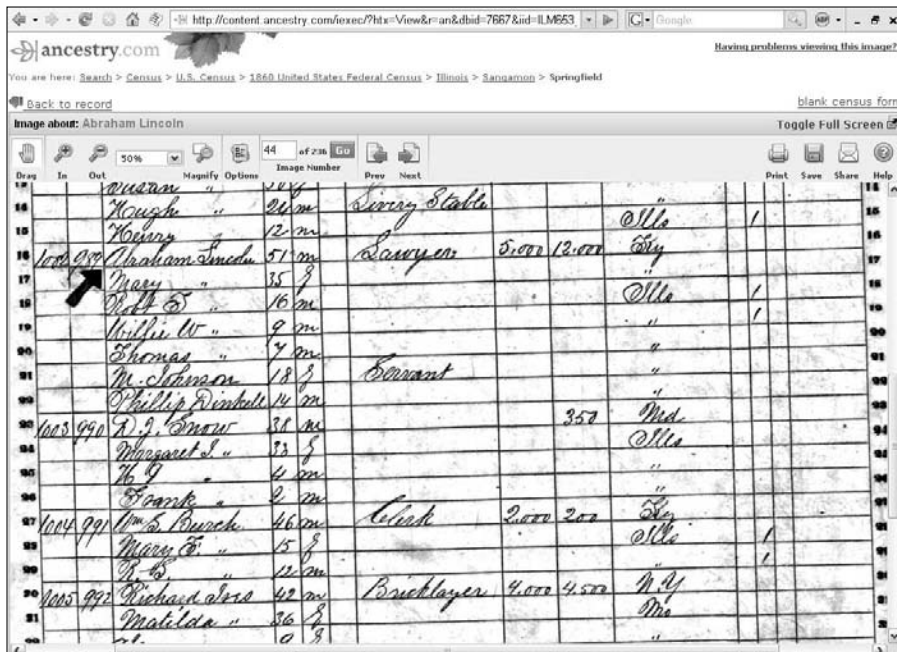 http://content.ancestry.com/iexec/?htx=View&r=an&dbid=7667&iid=ILM653_ Google ABP
ancestry.com Having problems viewing this image?
You are here: Search > Census > U.S. Census > 1860 United States Federal Census > Illinois > Sangamon > Springfield
Back to record blank census form
Image about: Abraham Lincoln Toggle Full Screen
50% 44 of 236 Go
Drag In Out Magnify Options Image Number Prev Next Print Save Share Help
Susan "
14 Hugh " 24 m Livery Stable "
15 Henry " 12 m Ills 1
16 1002 989 Abraham Lincoln 51 m Lawyer 5,000 12,000 Ky
17 Mary " 35 f "
18 Robt T " 16 m Ills 1
19 Willie W " 9 m " 1
Thomas " 7 m "
M. Johnson 18 f Servant "
Phillip Dinkell 14 m "
1003 990 D. J. Snow 38 m 350 Md
Margaret I. " 33 f Ills
4 m "
Frank " 2 m "
1004 991 Wm S. Burch 46 m Clerk 2,000 200 Ky
Mary F. " 15 f Ills 1
R. S. " 12 m " 1
1005 992 Richard Ives 42 m Bricklayer 4,000 4,500 N.Y
Matilda " 36 f Mo
9 f "